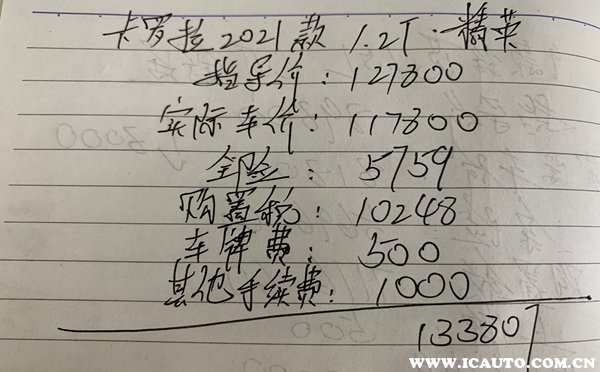 卡罗拉2021款 1.2T·精英
指导价：127800
实际车价：117800
全险：5759
购置税：10248
车牌费：500
其他手续费：1000
133807
WWW.ICAUTO.COM.CN